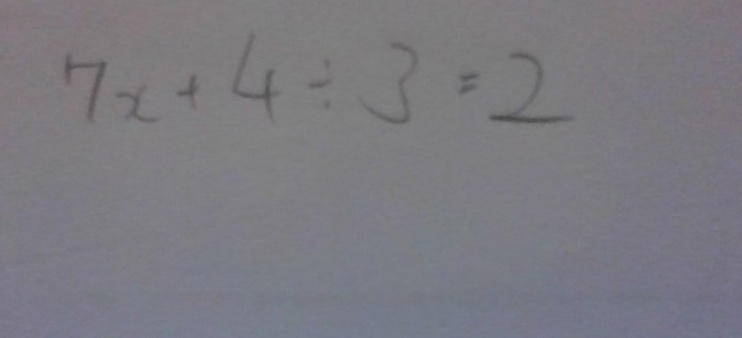 7x + 4 ÷ 3 = 2